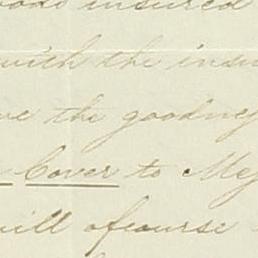 insured
with the
the goodness
Cover to
will ofcourse